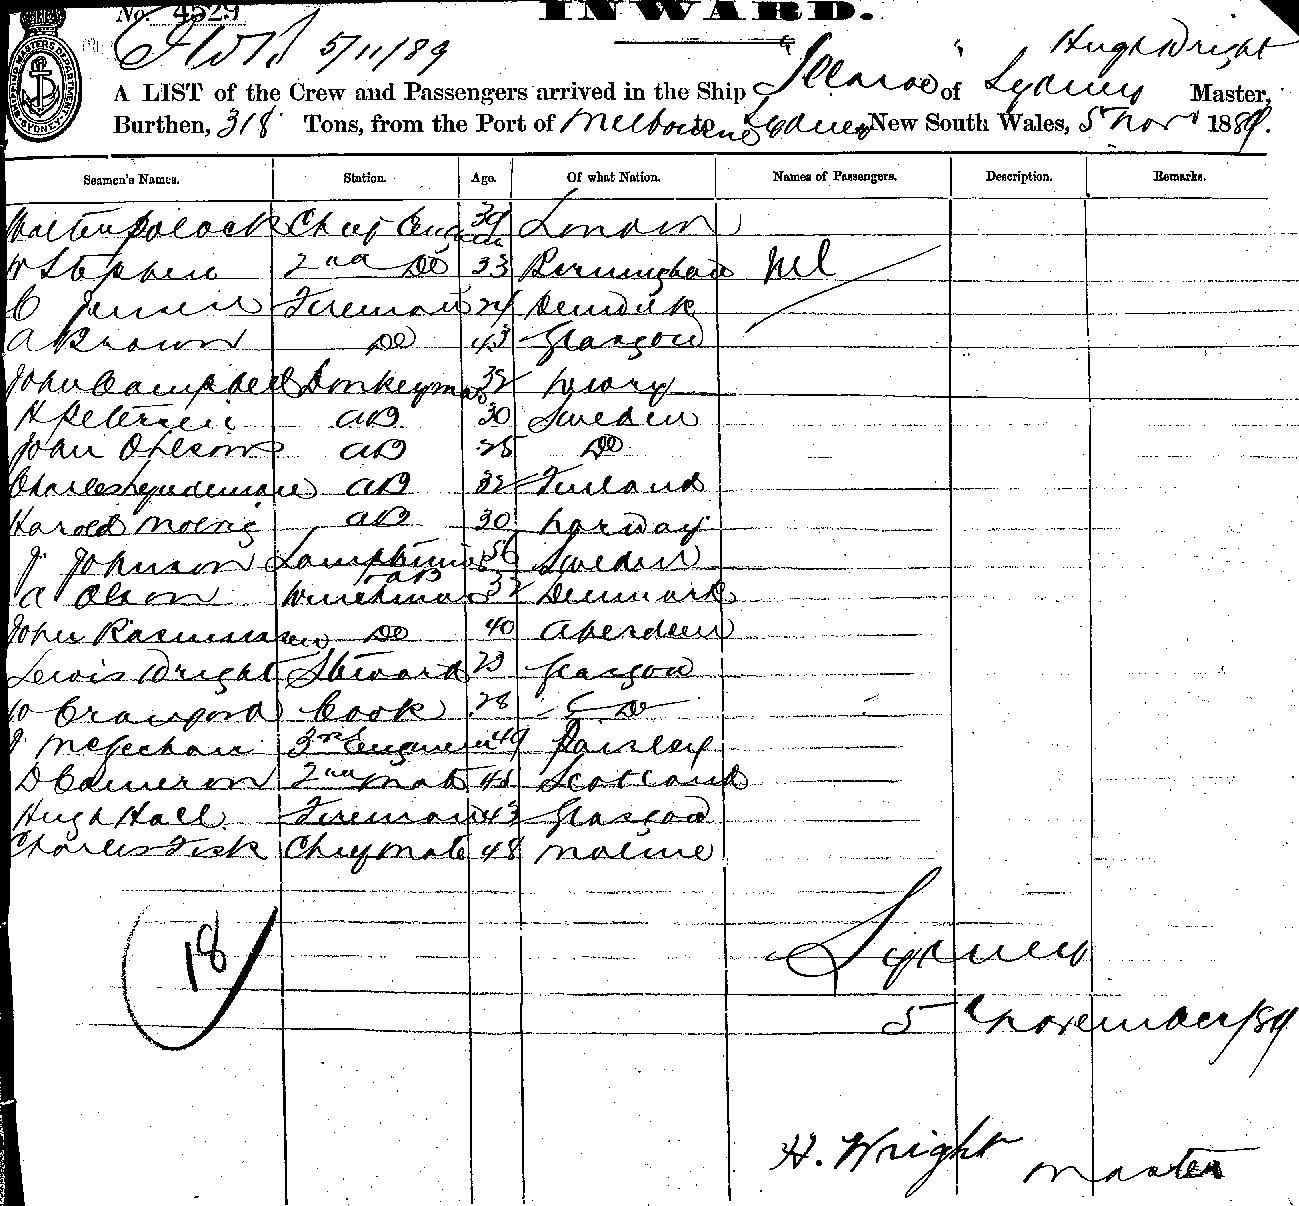 No. 4529
INWARD.
5/11/89
Hugh Wright
A LIST of the Crew and Passengers arrived in the Ship "Illaroo" of Sydney Master,
Burthen, 318 Tons, from the Port of Melbourne to Sydney New South Wales, 5 Nov 1889.
Seamen's Names. Station. Age. Of what Nation. Names of Passengers. Description. Remarks.
Walter Polock Chief Engineer 39 London
W Stephen 2nd Do 33 Birmingham Nil
C Jensen Fireman 24
A Brown Do 43 Glasgow
John Campbell Donkeyman 32 Newry
H Petersen AB 30 Sweden
John Ohlson AB 25 Do
Charles AB 32 Finland
Harold AB 30 Norway
J Johnson Lamptrimmer 56 Sweden
AB
A Olson Winchman 32 Denmark
John Rasmussen Do 40 Aberdeen
Lewis Wright Steward 23 Glasgow
Crawford Cook 28 Do
J McGechan 3rd Engineer 49 Paisley
D Cameron 2nd Mate 48 Scotland
Hugh Hall Fireman 43 Glasgow
Charles Fisk Chief Mate 48
18
Sydney
5th November/89
H. Wright Master